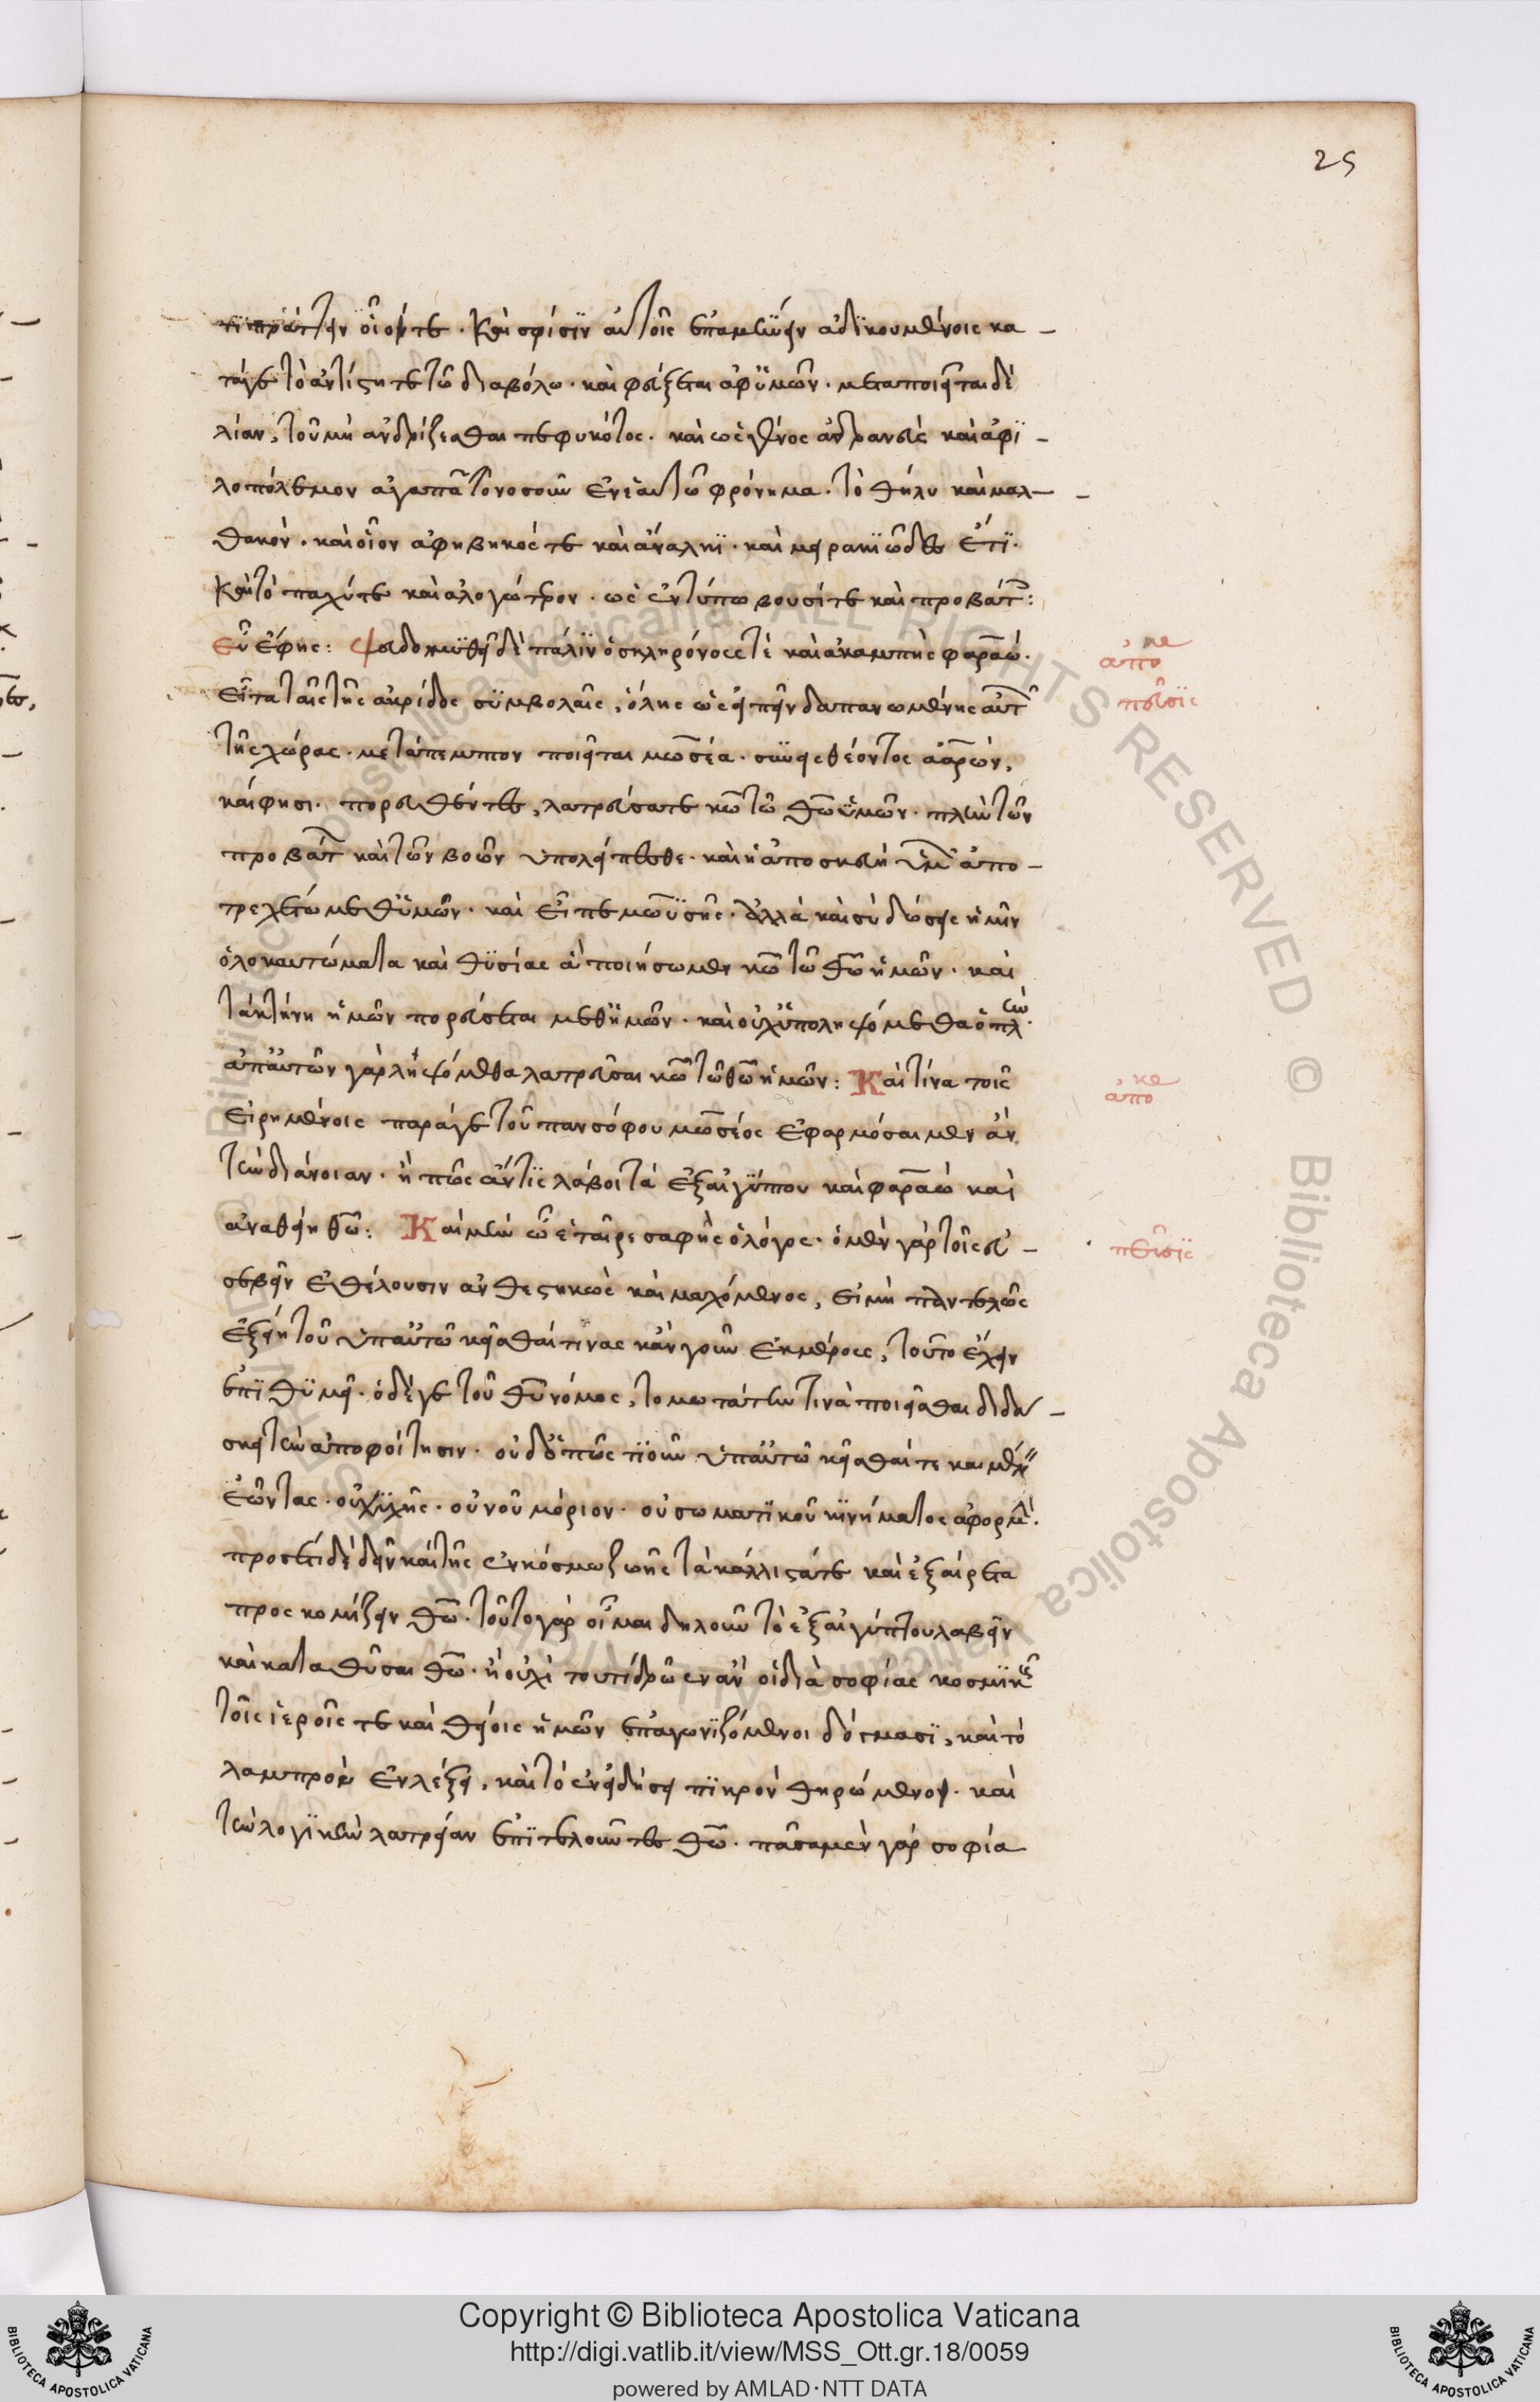 25
τι πράττειν οἷοί τε. Καὶ σφίσιν αὐτοῖς ἐπαμύνειν ἀδικουμένοις κα-
ταγε τὸ ἀντίστητε τῷ διαβόλῳ. καὶ φεύξεται ἀφ' ὑμῶν. μεταποιεῖται δὲ
λίαν, τοῦ μὴ ἀνδρίζεσθαι πεφυκότος. καὶ ὡς γένος ἀδρανὲς καὶ ἀφι-
λοπόλεμον ἀγαπᾷ τὸ νοσοῦν ἐν ἑαυτῷ φρόνημα. τὸ θῆλυ καὶ μαλ-
θακὸν. καὶ οἷον ἀφηβηκός τε καὶ ἄναλκι. καὶ μειρακιῶδες ἔτι.
Καὶ τὸ παχύ τε καὶ ἀλογώτερον. ὡς ἐν τύπῳ βουσί τε καὶ προβάτ:
Εὖ ἔφης: ψευδομυθεῖ δὲ πάλιν ὁ σκληρόνους τὲ καὶ ἀκαμπὴς φαραώ.
Εἶτα ταῖς τῆς ἀκρίδος συμβολαῖς, ὅλης ὡς εἰπεῖν δαπανωμένης αὐτ
τῆς χώρας. μετάπεμπτον ποιεῖται μωσέα. συνεισθέοντος ἀαρών,
καί φησι. πορεύθέντες, λατρεύσατε κω τῷ θω ὑμῶν. πλὴν τῶν
προβάτ καὶ τῶν βοῶν ὑπολείπεσθε. καὶ ἡ ἀποσκευὴ ὑμ ἀπο-
τρεχέτω μεθ' ὑμῶν. καὶ εἶπε μωυσῆς. ἀλλὰ καὶ σὺ δώσεις ἡμῖν
ὁλοκαυτώματα καὶ θυσίας ἃ ποιήσωμεν κω τῷ θω ἡμῶν. καὶ
τὰ κτήνη ἡμῶν πορεύσεται μεθ' ἡμῶν. καὶ οὐχ ὑπολειψόμεθα ὁπλὴν.
ἀπ' αὐτῶν γὰρ ληψόμεθα λατρεῦσαι κω τῷ θω ἡμῶν: Καὶ τίνα τοῖς
εἰρημένοις παράγε τοῦ πανσόφου μωσέος ἐφαρμόσαιμεν ἂν
τὴν διάνοιαν. ἢ πῶς ἄν τις λάβοι τὰ ἐξ αἰγύπτου καὶ φαραὼ καὶ
ἀναθείη θω: Καὶ μὴν ὦ ἑταῖρε σαφὴς ὁ λόγος. ὁ μὲν γὰρ τοῖς εὐ-
σεβεῖν ἐθέλουσιν ἀνθεστηκὼς καὶ μαχόμενος, εἰ μὴ παντελῶς
ἐξείη τοῦ ὑπ' αὐτῷ κεῖσθαί τινας κἂν γοῦν ἐκ μέρους, τοῦτο ἔχειν
ἐπιθυμεῖ. ὁ δέ γε τοῦ θυ νόμος, τομωτάτην τινὰ ποιεῖσθαι διδά-
σκει τὴν ἀποφοίτησιν. οὐδ' ὅπως τιοῦν ὑπ' αὐτῷ κεῖσθαί τε καὶ μέν
ἐῶντας. οὐ ψυχῆς. οὐ νοῦ μόριον. οὐ σωματικοῦ κινήματος ἀφορμὴ.
προσέτι δὲ δεῖν καὶ τῆς ἐν κόσμῳ ζωῆς τὰ κάλλιστά τε καὶ ἐξαίρετα
προσκομίζειν θω. τοῦτο γὰρ οἶμαι δηλοῦν τὸ ἐξ αἰγύπτου λαβεῖν
καὶ καταθῦσαι θω. ἢ οὐχὶ τουτὶ δρῷεν ἂν οἱ διὰ σοφίας κοσμικ
τοῖς ἱεροῖς τε καὶ θείοις ἡμῶν ἐπαγωνιζόμενοι δόγμασι, καὶ τὸ
λαμπρὸν ἐν λέξει, καὶ τὸ ἐν εἰδήσει πικρὸν θηρώμενοι. καὶ
τὴν λογικὴν λατρείαν ἐπιτελοῦντες θω. πᾶσα μὲν γὰρ σοφία
ἀπο κε
πεῦσις
ἀπο κε
πεῦσις
Copyright © Biblioteca Apostolica Vaticana
http://digi.vatlib.it/view/MSS_Ott.gr.18/0059
powered by AMLAD·NTT DATA